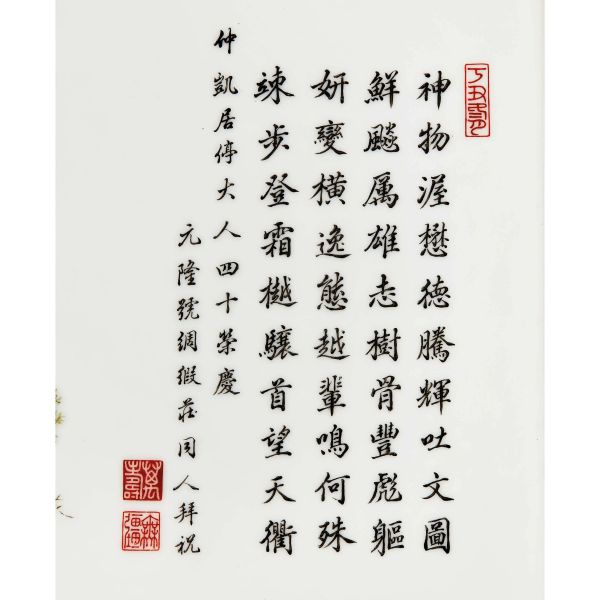 神物渥懋德騰輝吐文圖
鮮飈厲雄志樹骨豐彪軀
妍變橫逸態越輩鳴何殊
竦步登霜樾驤首望天衢
仲凱居停大人四十榮慶
元隆號綢緞莊同人拜祝
萬壽
無疆